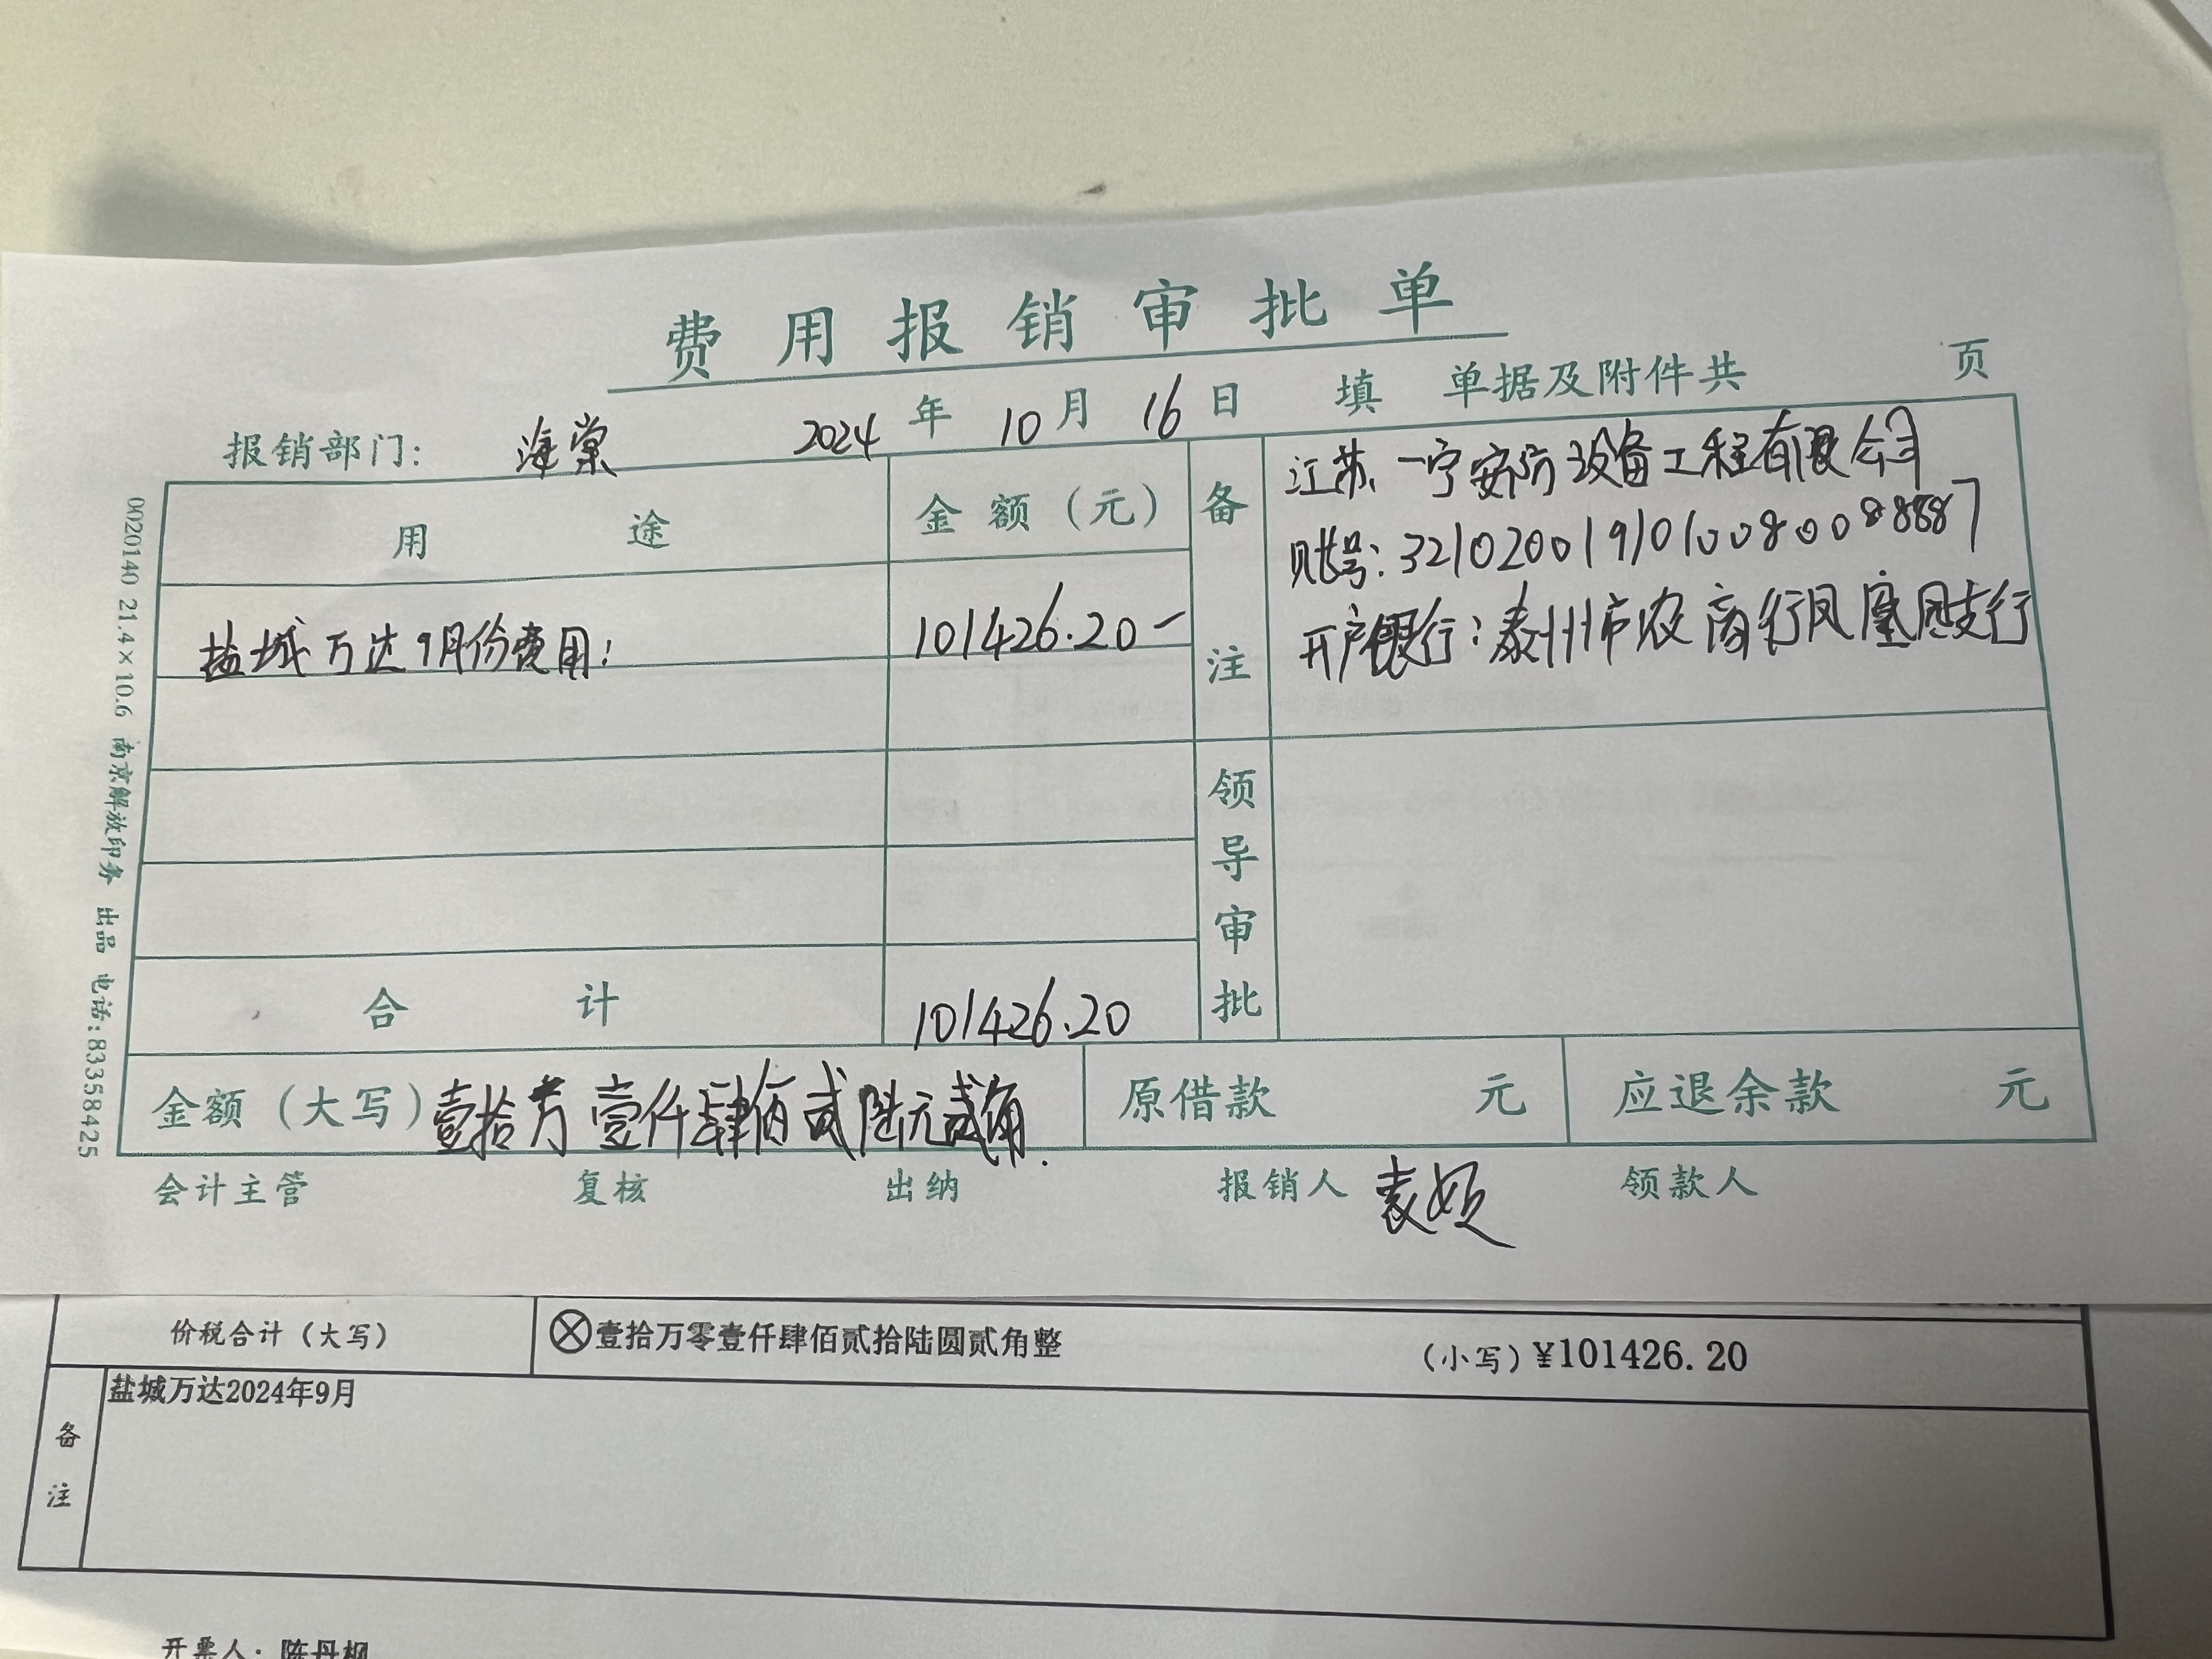 费用报销审批单
报销部门: 海棠 2024 年 10 月 16 日 填 单据及附件共 页
用途 金额(元) 备注
江苏一宁安防设备工程有限公司
账号: 3210200191010080088887
开户银行: 泰州市农商行凤凰园支行
盐城万达9月份费用: 101426.20
领导审批
合计 101426.20
金额(大写) 壹拾万壹仟肆佰贰陆元贰角. 原借款 元 应退余款 元
会计主管 复核 出纳 报销人 袁 领款人
0020140 21.4×10.6 南京解放印务 出品 电话:83358425
价税合计(大写) ⊗壹拾万零壹仟肆佰贰拾陆圆贰角整 (小写)¥101426.20
备注
盐城万达2024年9月
开票人: 陈丹